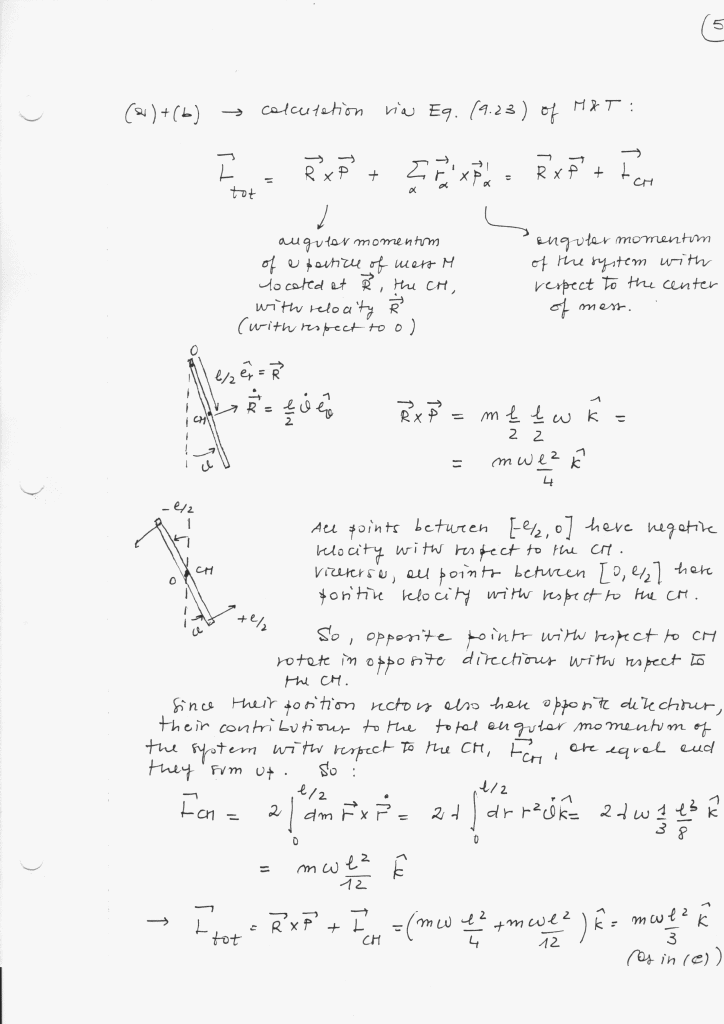 (5
(a)+(b) → calculation via Eq. (9.23) of M&T :
L⃗_tot = R⃗ × P⃗ + Σ_α r⃗'_α × p⃗'_α = R⃗ × P⃗ + L⃗_CM
angular momentum
of a particle of mass M
located at R⃗, the CM,
with velocity R⃗̇
(with respect to O)
angular momentum
of the system with
respect to the center
of mass.
O
l/2 ê_r = R⃗
R⃗̇ = l/2 ϑ̇ ê_ϑ
CM
ϑ
R⃗ × P⃗ = m l/2 l/2 ω k̂ =
= m ω l²/4 k̂
-l/2
CM
O
+l/2
ϑ
All points between [-l/2, 0] have negative
velocity with respect to the CM.
Viceversa, all points between [0, l/2] have
positive velocity with respect to the CM.
So, opposite points with respect to CM
rotate in opposite directions with respect to
the CM.
Since their position vectors also have opposite directions,
their contributions to the total angular momentum of
the system with respect to the CM, L⃗_CM, are equal and
they sum up. So :
L⃗_CM = 2 ∫_0^{l/2} dm r⃗ × r⃗̇ = 2 λ ∫_0^{l/2} dr r² ϑ̇ k̂ = 2 λ ω 1/3 l³/8 k̂
= m ω l²/12 k̂
→ L⃗_tot = R⃗ × P⃗ + L⃗_CM = (m ω l²/4 + m ω l²/12) k̂ = m ω l²/3 k̂
(as in (c))